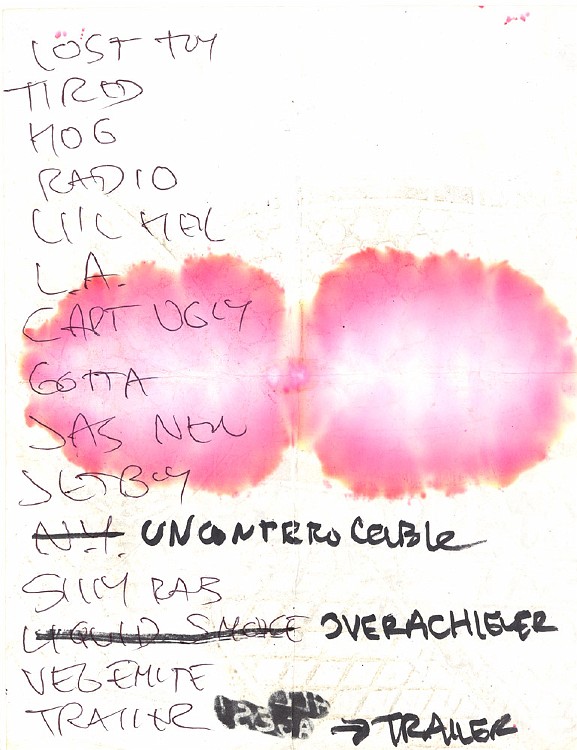 LOST TOY
TIRED
HOG
RADIO
LIL HEL
L.A.
CAPT UGLY
GOTTA
JAS NEW
JETBOY
N.Y. UNCONTEROLELBLE
SILLY RAB
LIQUID SMOKE OVERACHIEVER
VEGEMITE
TRAILER → TRAILER